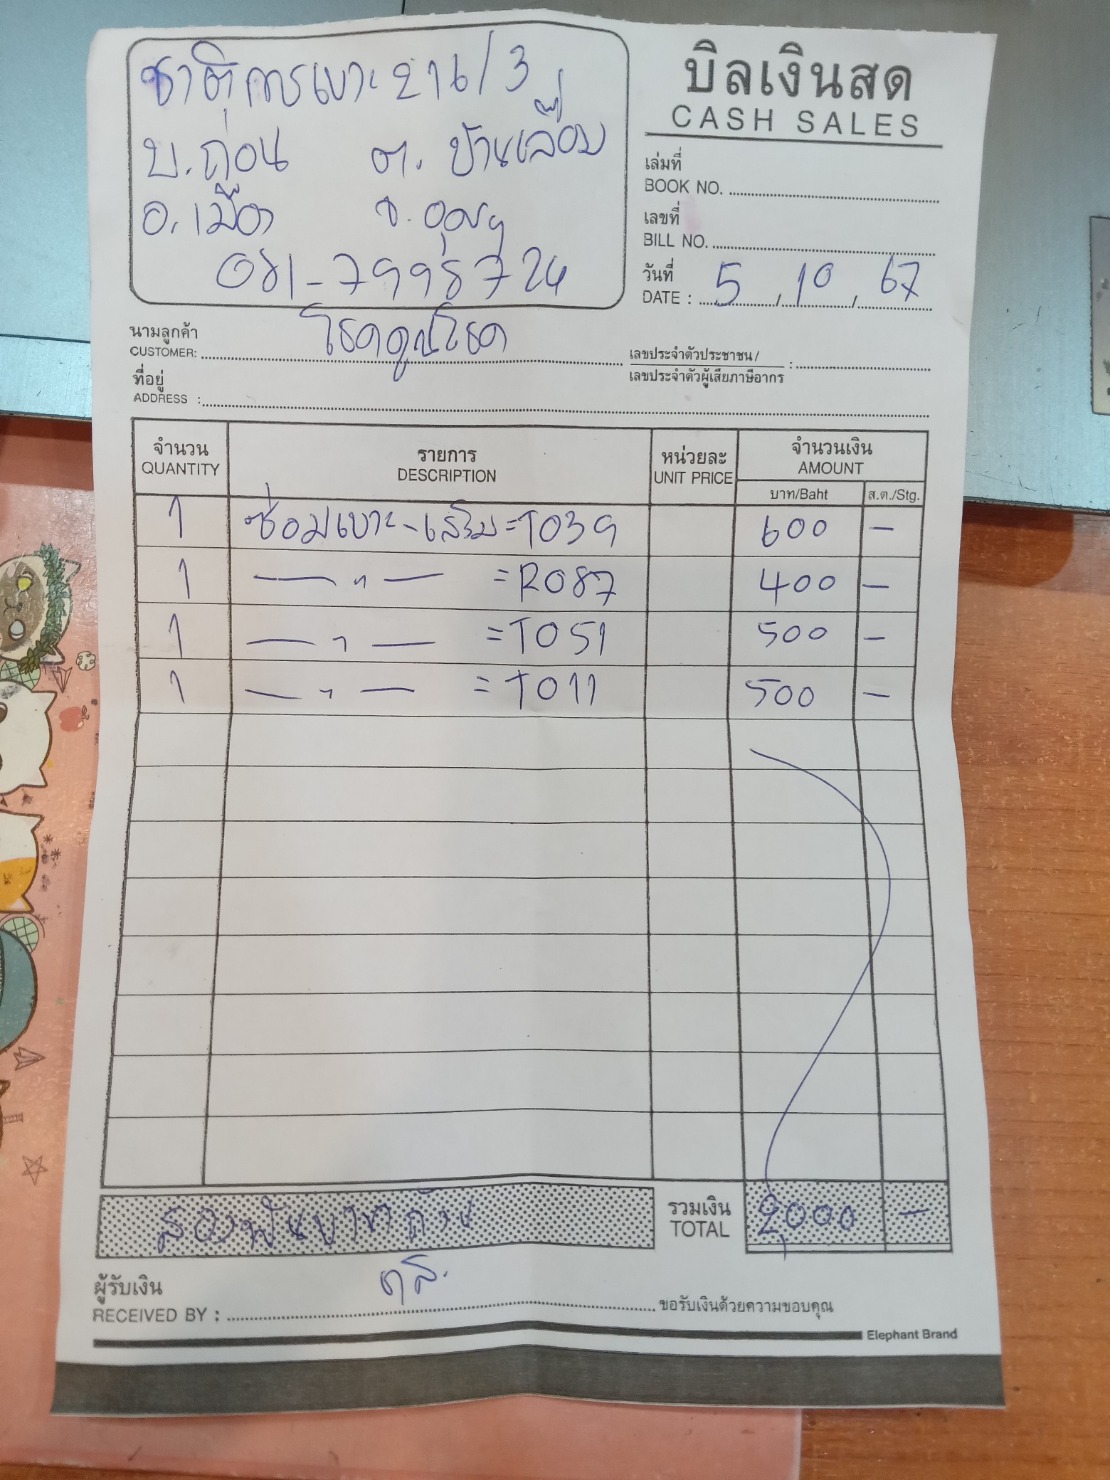 ชาติการเบาะ 216/3
บ.ถ่อน ต.บ้านเลื่อม
อ.เมือง จ.อุดรฯ
081-7998724
บิลเงินสด
CASH SALES
เล่มที่
BOOK NO.
เลขที่
BILL NO.
วันที่
DATE : 5, 10, 67
นามลูกค้า
CUSTOMER: โชคคูณโชค
เลขประจำตัวประชาชน/
เลขประจำตัวผู้เสียภาษีอากร :
ที่อยู่
ADDRESS :
จำนวน รายการ หน่วยละ จำนวนเงิน
QUANTITY DESCRIPTION UNIT PRICE AMOUNT
บาท/Baht ส.ต./Stg.
1 ซ่อมเบาะ-เสริม = T039 600 -
1 — " — = R087 400 -
1 — " — = T051 500 -
1 — " — = T011 500 -
สองพันบาทถ้วน รวมเงิน 2,000 -
TOTAL
ผู้รับเงิน
RECEIVED BY : ขอรับเงินด้วยความขอบคุณ
Elephant Brand